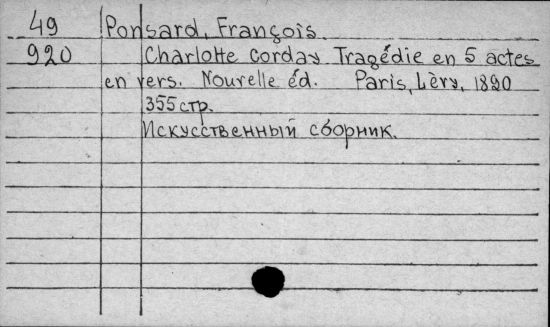 49 Ponsard, François.
920 Charlotte Corday Tragédie en 5 actes
en vers. Nouvelle éd. Paris, Lèvy, 1890
355 стр.
Искусственный сборник.